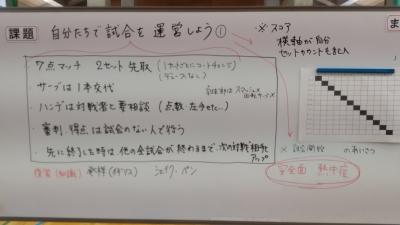 課題 自分たちで試合を運営しよう①
※スコア
横軸が自分
セットカウントも記入
・7点マッチ 2セット先取 (1セットごとにコートチェンジ
デュースなし)
・サーブは1本交代
・ハンデは対戦者と要相談 (点数・左手etc...)
・審判、得点は試合のない人で行う
・先に終了した時は他の全試合が終わるまで、次の対戦相手と
アップ
※試合開始 のあいさつ
(知識) 発祥(イギリス) シェイク・ペン
安全面 熱中症
ま